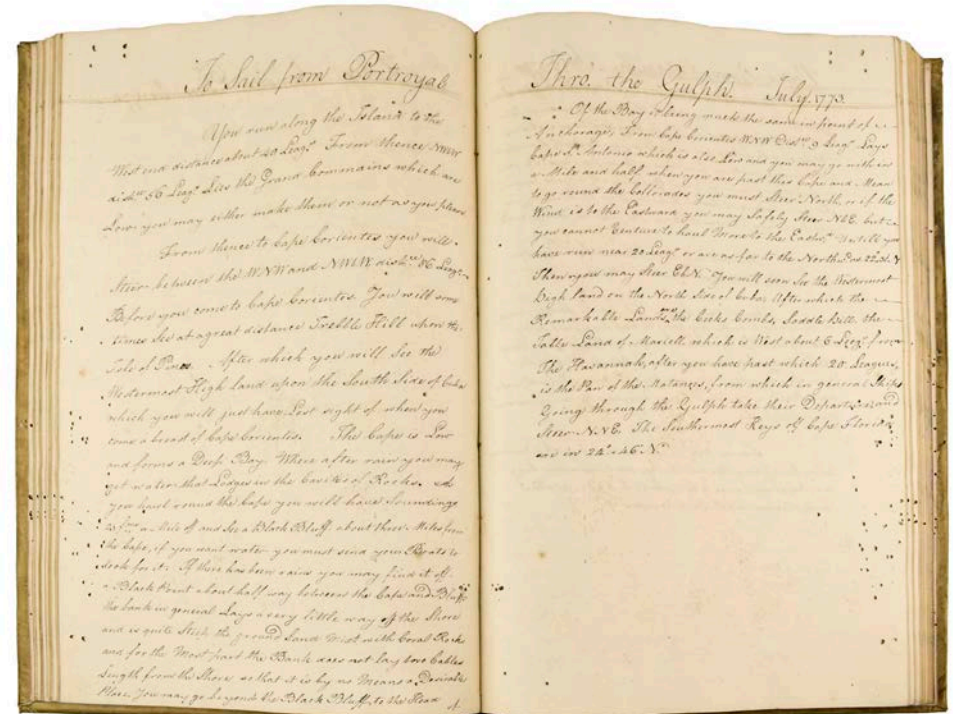 To Sail from Portroyal
You run along the Island to the
West end distance about 40 Leags From thence NWbW
distce 56 Leags Lies the Grand Commanains which are
Low, you may either make them or not as you please
From thence to Cape Corientes you will
Steer between the WNW and NWbW distce 86 Leags
Before you come to Cape Corientes You will some
times See at a great distance Trebble Hill upon the
Isle of Pines. After which you will See the
Westermost High Land upon the South Side of Cuba
which you will just have Lost sight of when you
come abreast of Cape Corientes. The Cape is Low
and forms a Deep Bay. Where after rain you may
get water that Lodges in the Cavities of Rocks. As
you haul round the Cape you will have Soundings
a Mile off and See a Black Bluff about three Miles from
the Cape, if you want water you must send your Boats to
look for it. If there has been rains you may find it off
a Black Point about half way between the Cape and Bluff
the bank in general Lays a very little way off the Shore
and is quite Steep the ground Sand Mixt with Coral Rocks
and for the Most part the Bank does not lay two Cables
Length from the Shore so that it is by no Means a Desirable
Place. You may go beyond the Black Bluff to the Head
Thro. the Gulph. July. 1773.
Of the Bay it being much the same in point of
Anchorage, From Cape Corientes WNW Distce 9 Leags Lays
Cape St. Antonio which is also Low and you may go with in
a Mile and half when you are past this Cape and Mean
to go round the Collorades you must Steer North, or if the
Wind is to the Eastward you may Safely Steer NbE. but
you cannot Venture to haul More to the Eastwd Untill you
have run near 20 Leags or are as far to the Northwd as
Then you may Steer EbN. You will soon See the Westermost
High Land on the North Side of Cuba, After which the
Remarkable Lands, the Cocks Combs, Saddle Hill the
Table Land of Mariell which is West about 6 Leags from
The Havannah, after you have past which 20 Leagues,
is the Pan of the Matances, from which in general Ships
Going through the Gulph take their Departure, and
Steer N.NE. The Southermost Keys off Cape Florida
are in 24°:46 N.